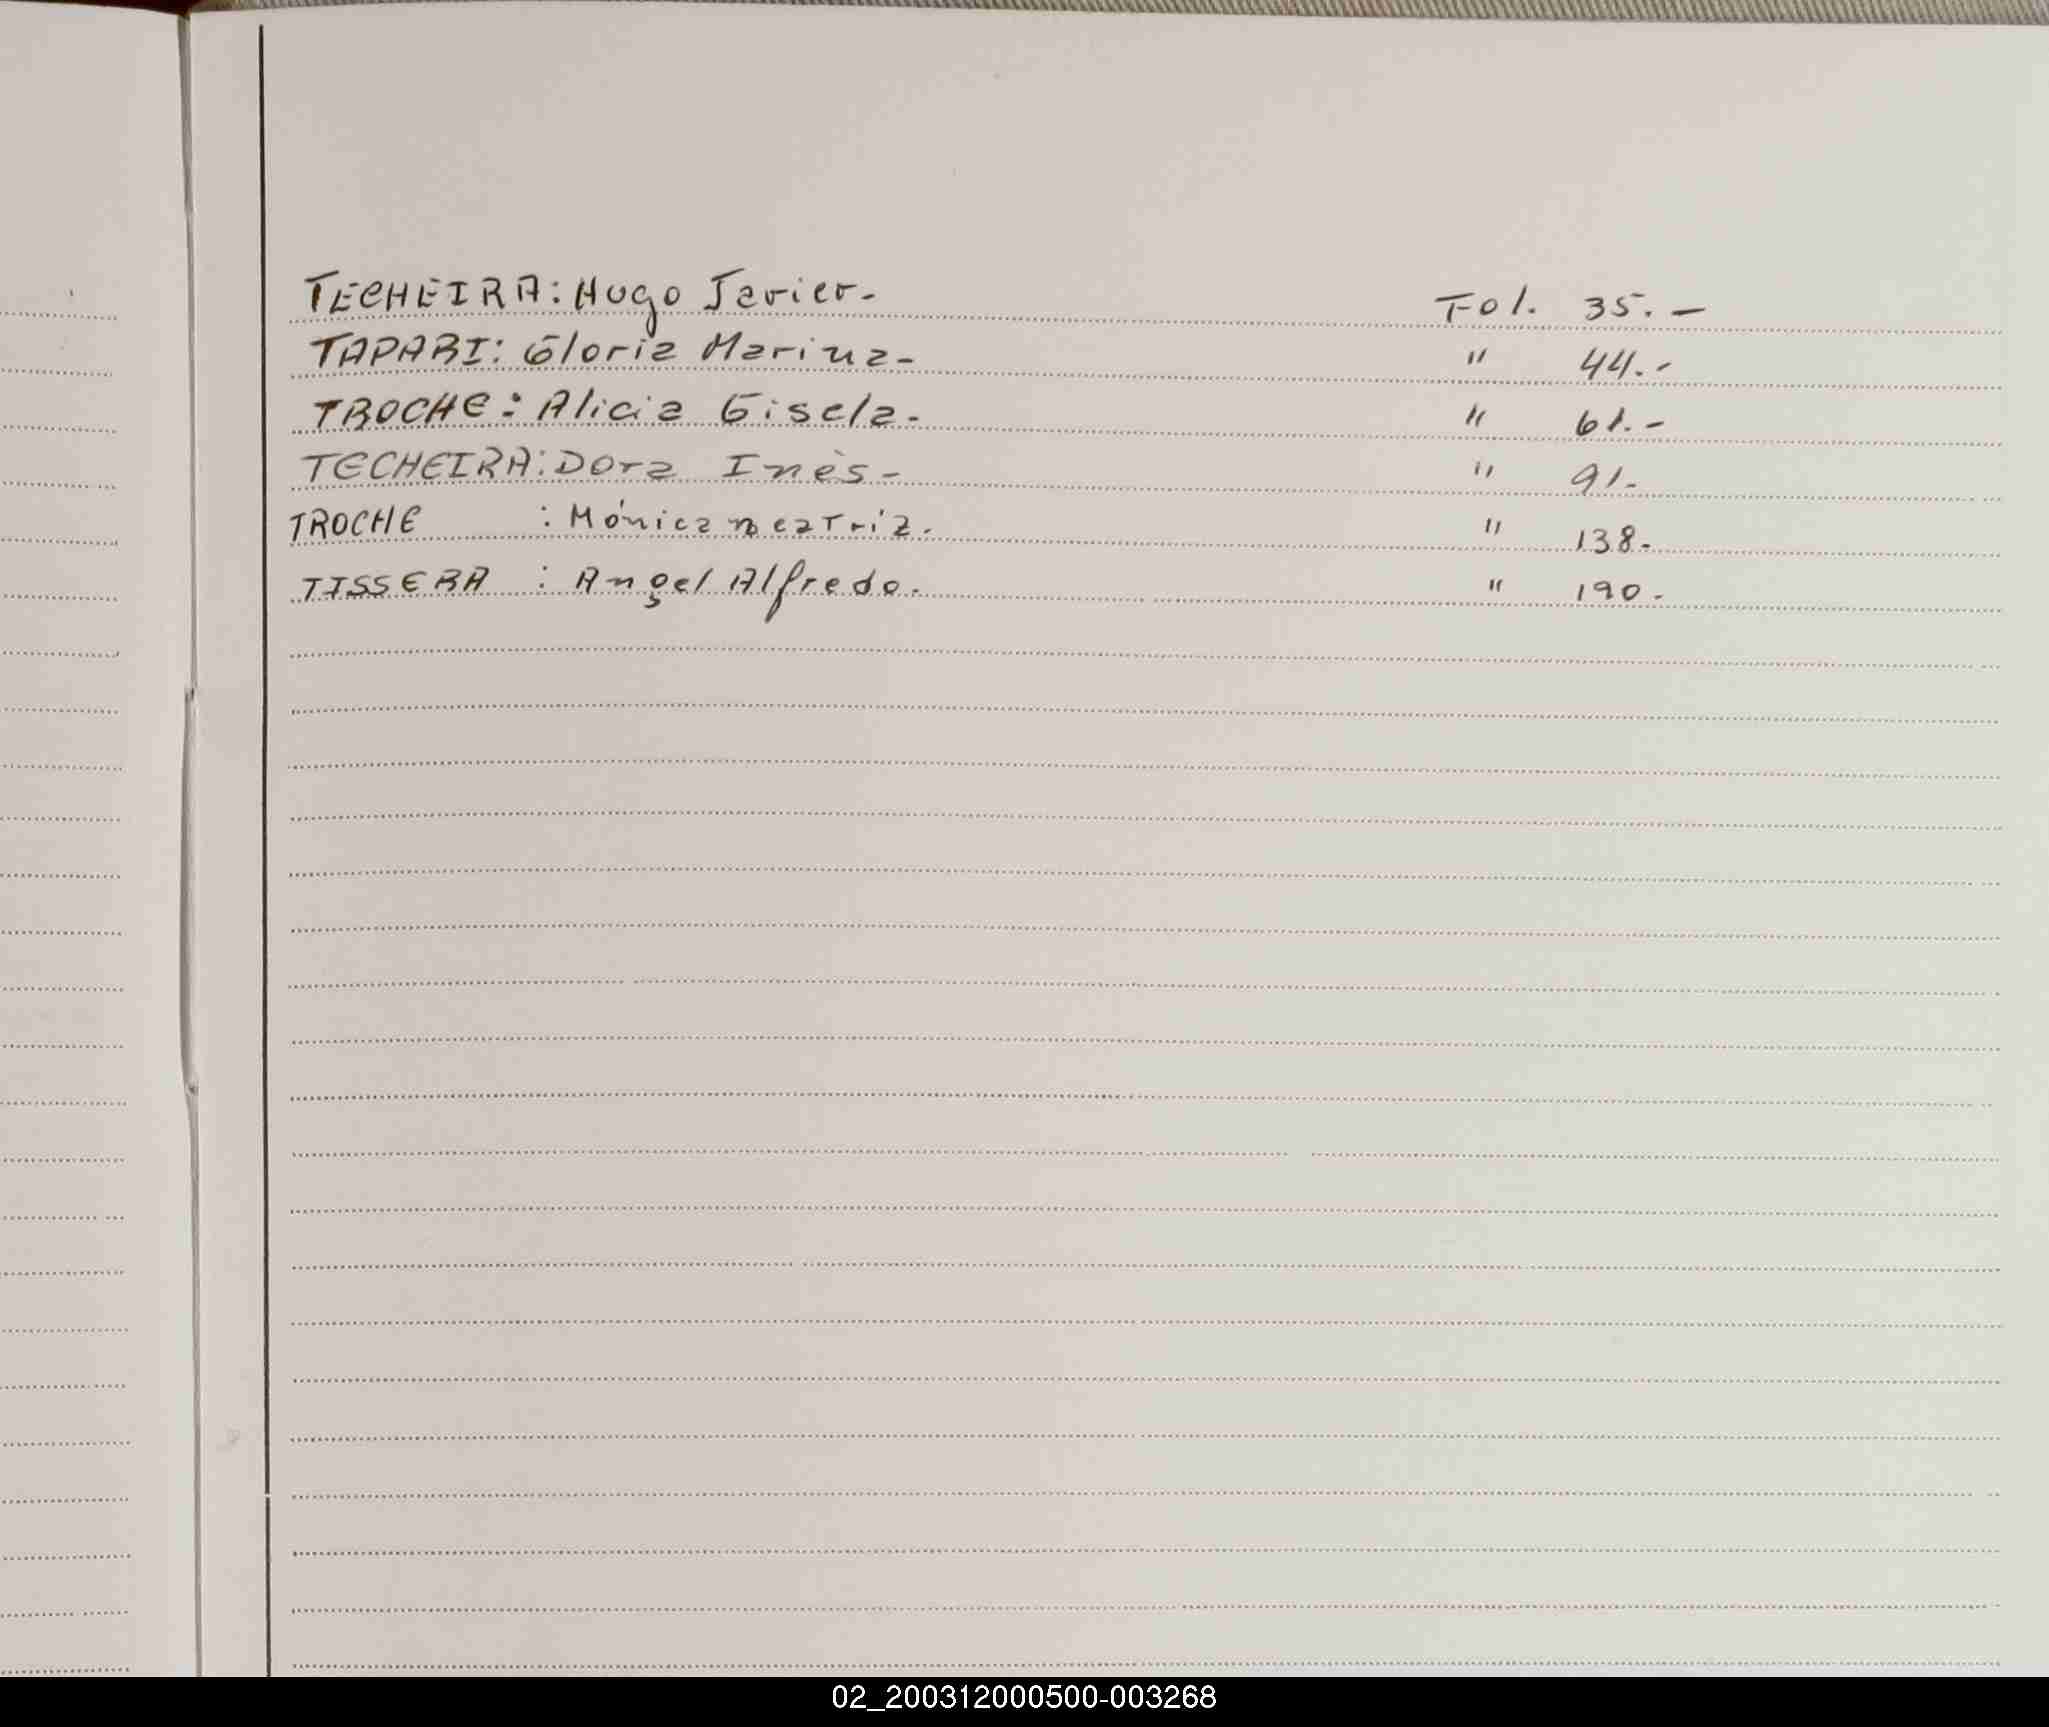 TECHEIRA: Hugo Javier.- Fol. 35.-
TAPARI: Gloria Marina- " 44.-
TROCHE: Alicia Gisela. " 61.-
TECHEIRA: Dora Inès- " 91.-
TROCHE : Mónica Beatriz. " 138.-
TISSERA : Angel Alfredo. " 190.-
02_200312000500-003268